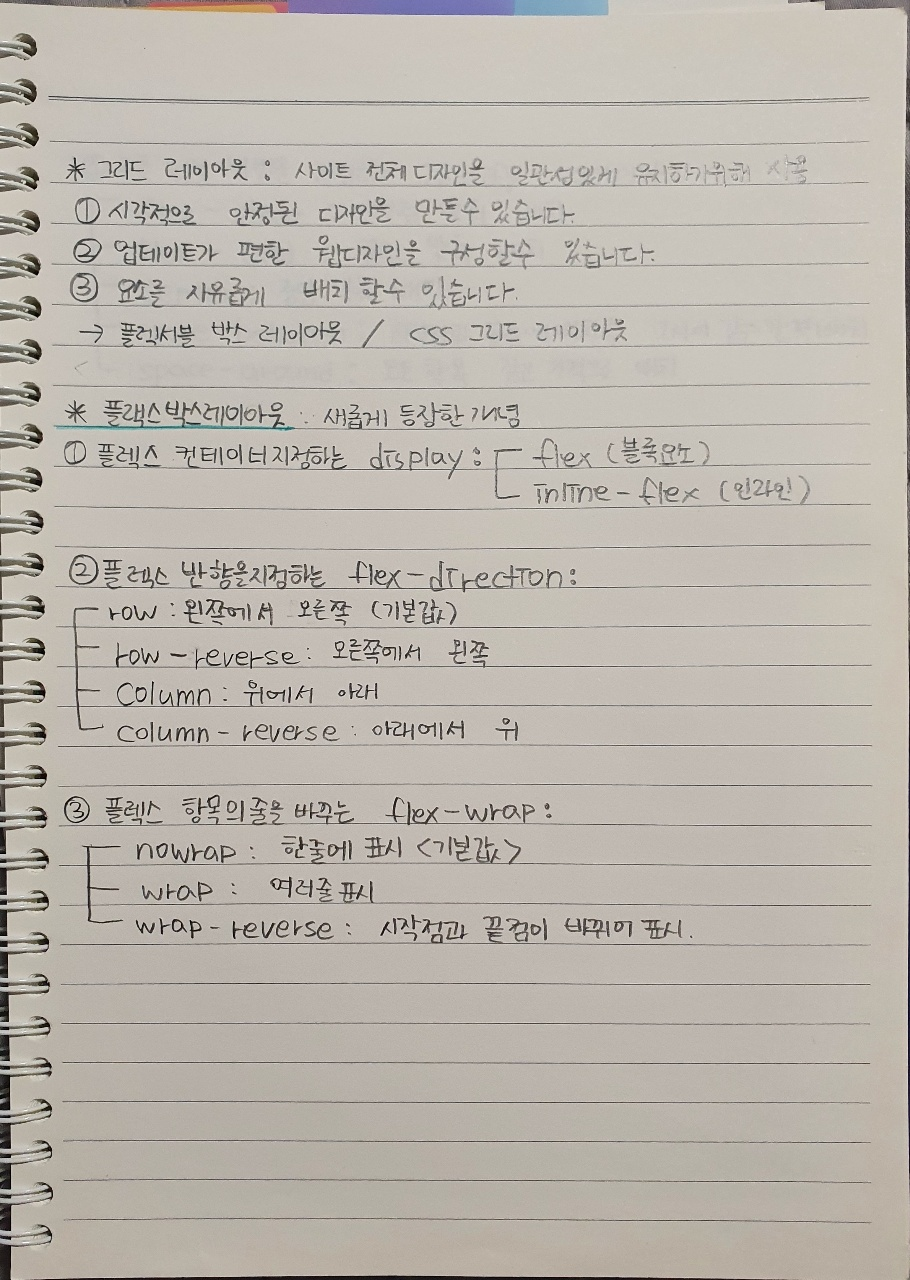 * 그리드 레이아웃 : 사이트 전체 디자인을 일관성있게 유지하기위해 사용
① 시각적으로 안정된 디자인을 만들수 있습니다.
② 업데이트가 편한 웹디자인을 구성할수 있습니다.
③ 요소를 자유롭게 배치 할수 있습니다.
→ 플렉서블 박스 레이아웃 / CSS 그리드 레이아웃
* 플랙스박스레이아웃 : 새롭게 등장한 개념
① 플렉스 컨테이너지정하는 display : flex (블록요소)
inline-flex (인라인)
② 플렉스 반향을지정하는 flex-direction :
row : 왼쪽에서 오른쪽 (기본값)
row-reverse : 오른쪽에서 왼쪽
column : 위에서 아래
column-reverse : 아래에서 위
③ 플렉스 항목의줄을 바꾸는 flex-wrap :
nowrap : 한줄에 표시 <기본값>
wrap : 여러줄 표시
wrap-reverse : 시작점과 끝점이 바뀌어 표시.